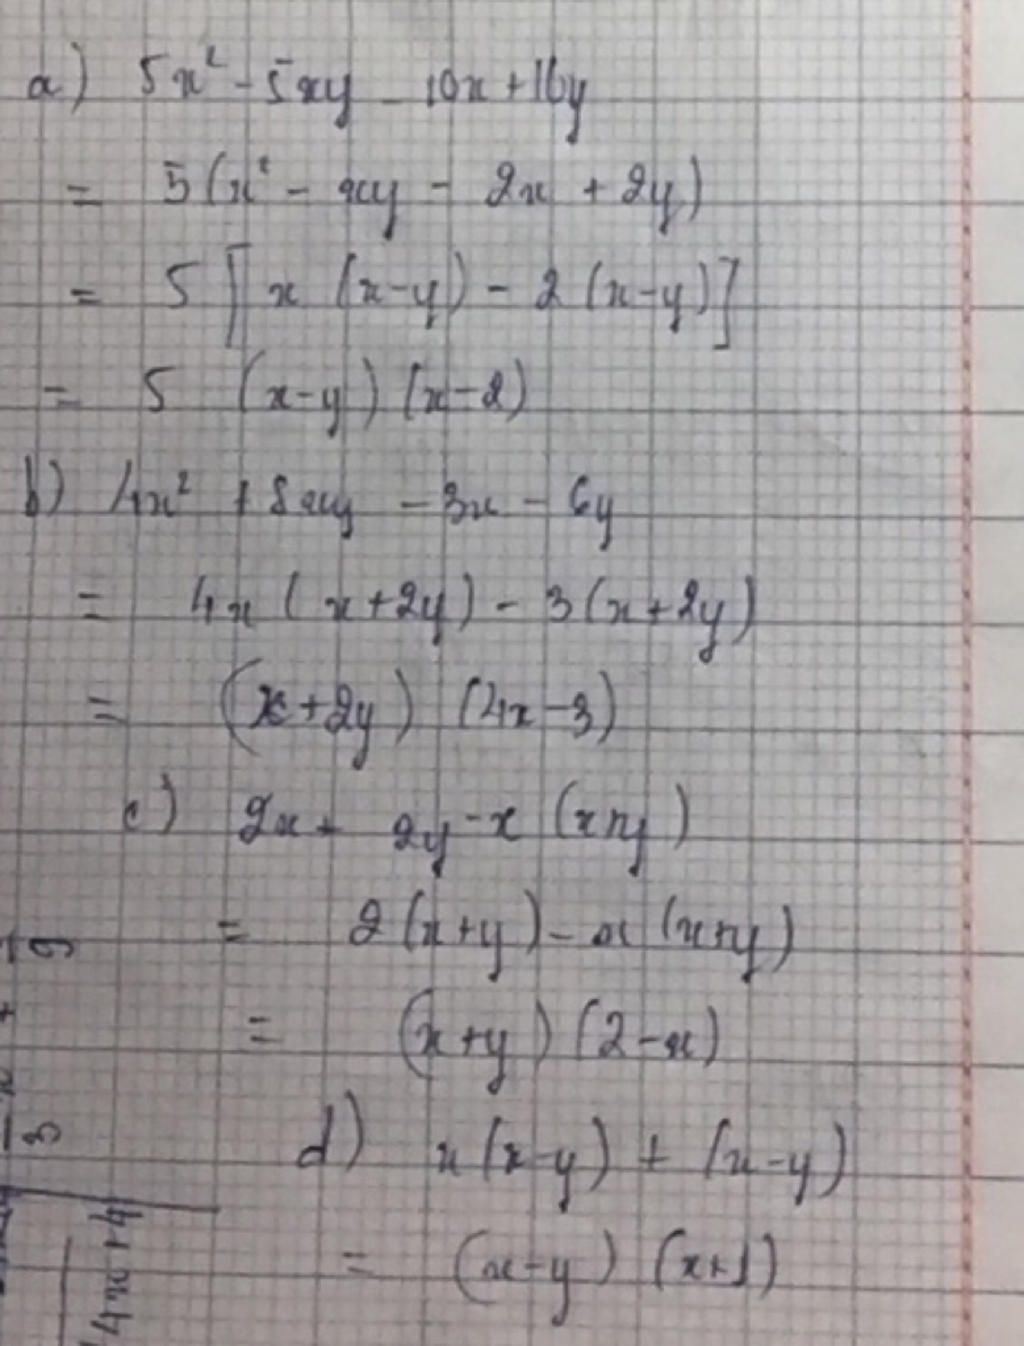 a) 5x² - 5xy - 10x + 10y
= 5(x² - xy - 2x + 2y)
= 5 [x (x-y) - 2 (x-y)]
= 5 (x-y) (x-2)
b) 4x² + 8xy - 3x - 6y
= 4x (x+2y) - 3(x+2y)
= (x+2y) (4x-3)
c) 2x + 2y - x (x+y)
= 2(x+y) - x (x+y)
= (x+y) (2-x)
d) x(x-y) + (x-y)
= (x-y) (x+1)
9
+
3
4x+4